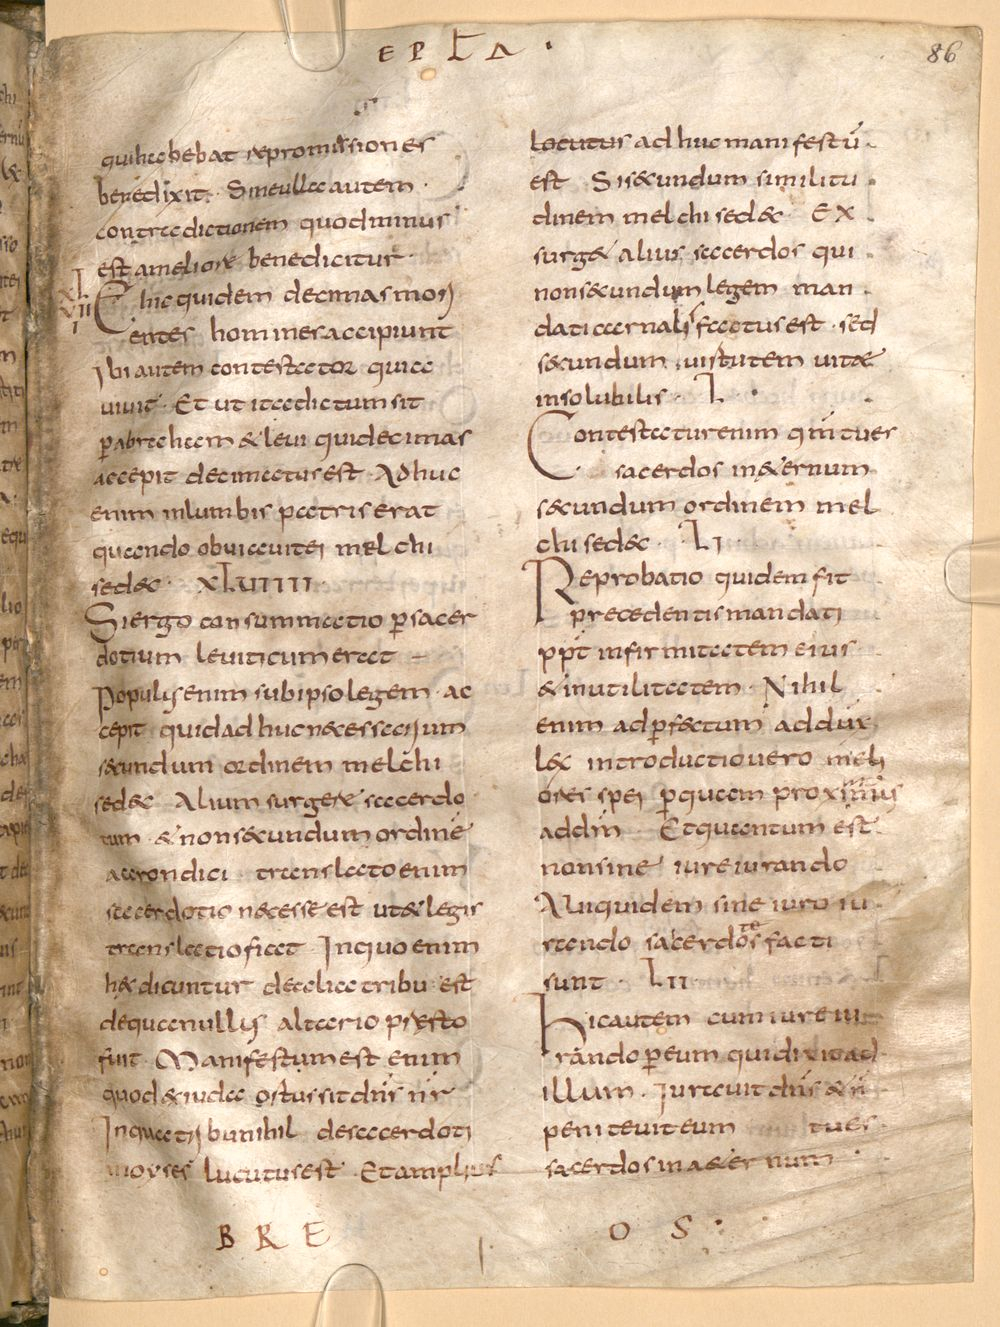 EPLA ·
86
qui habebat repromissiones
benedixit · Sineulla autem ·
contradictionem quodminus
est ameliore benedicitur ·
XLVIII
Et hic quidem decimas mori
entes homines accipiunt
ibi autem contestator quia
vivit · Et ut ita dictum sit
p abraham & levi qui decimas
accepit decimatus est · Adhuc
enim in lumbis patris erat
quando obviavit ei melchi
sedec · XLVIIII ·
Si ergo consummatio p sacer
dotium leviticum erat
Populis enim sub ipso legem · ac
cepit quid adhuc necessarium
secundum ordinem melchi
sedec Alium surgere sacerdo
tem & non secundum ordinē
aaron dici translato enim
sacerdotio necesse est ut & legis
translatio fiat In quo enim
hec dicuntur de alia tribu · est
de qua nullus altario presto
fuit · Manifestum est enim
quod ex iuda ortus sit dn̄s nr̄
In qua tribu nihil de sacerdoti
moyses lucutus est · Et amplius
locutus adhuc manifestū ·
est Si secundum similitu ·
dinem melchisedec EX
surget alius sacerdos qui
non secundum legem man
dati carnalis factus est · sed
secundum virtutem vitae
insolubilis · L ·
Contestatur enim qm̄ tu es
sacerdos in aeternum
secundum ordinem mel
chisedec · LI
Reprobatio quidem fit
precedentis mandati
ppt infirmitatem eius
& inutilitatem · Nihil
enim ad pfectum addux
lex introductio vero meli
oris spei p quam proximius
ad dm̄ Et quantum est ·
non sine iureiurando
Alii quidem sine iuro iu ·
rando sacerdotes facti
sunt LII
hic autem cum iureiu
rando p eum qui dixit ad
illum · Iuravit dn̄s & n̄
penitevit eum tu es
sacerdos in aeternum
BRE OS ·